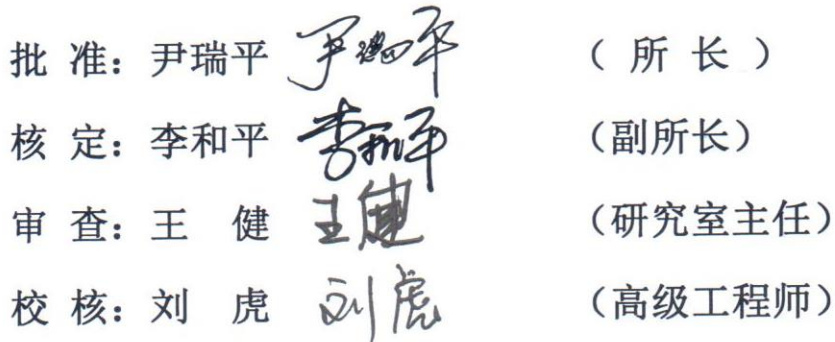 批 准：尹瑞平 尹瑞平 （ 所 长 ）
核 定：李和平 李和平 （副所长）
审 查：王 健 王健 （研究室主任）
校 核：刘 虎 刘虎 （高级工程师）